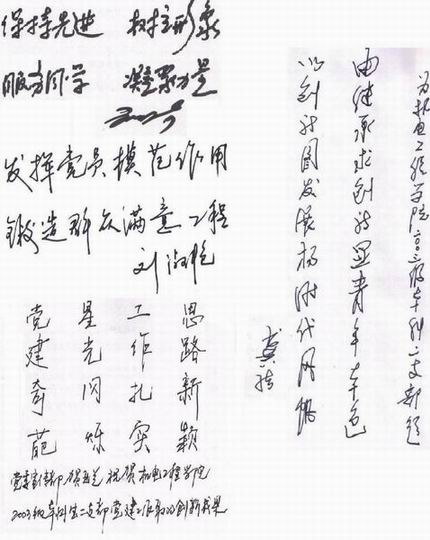 保持先进 树立形象
服务同学 凝聚力量
发挥党员模范作用
锻造群众满意工程
刘淑艳
思路新颖
工作扎实
星光闪烁
党建奇葩
祝贺机电工程学院
2003级本科生二支部党建工作取得创新成果
为机电工程学院二〇〇三级本科二支部题
由继承求创新显青年本色
以创新图发展扬时代风帆